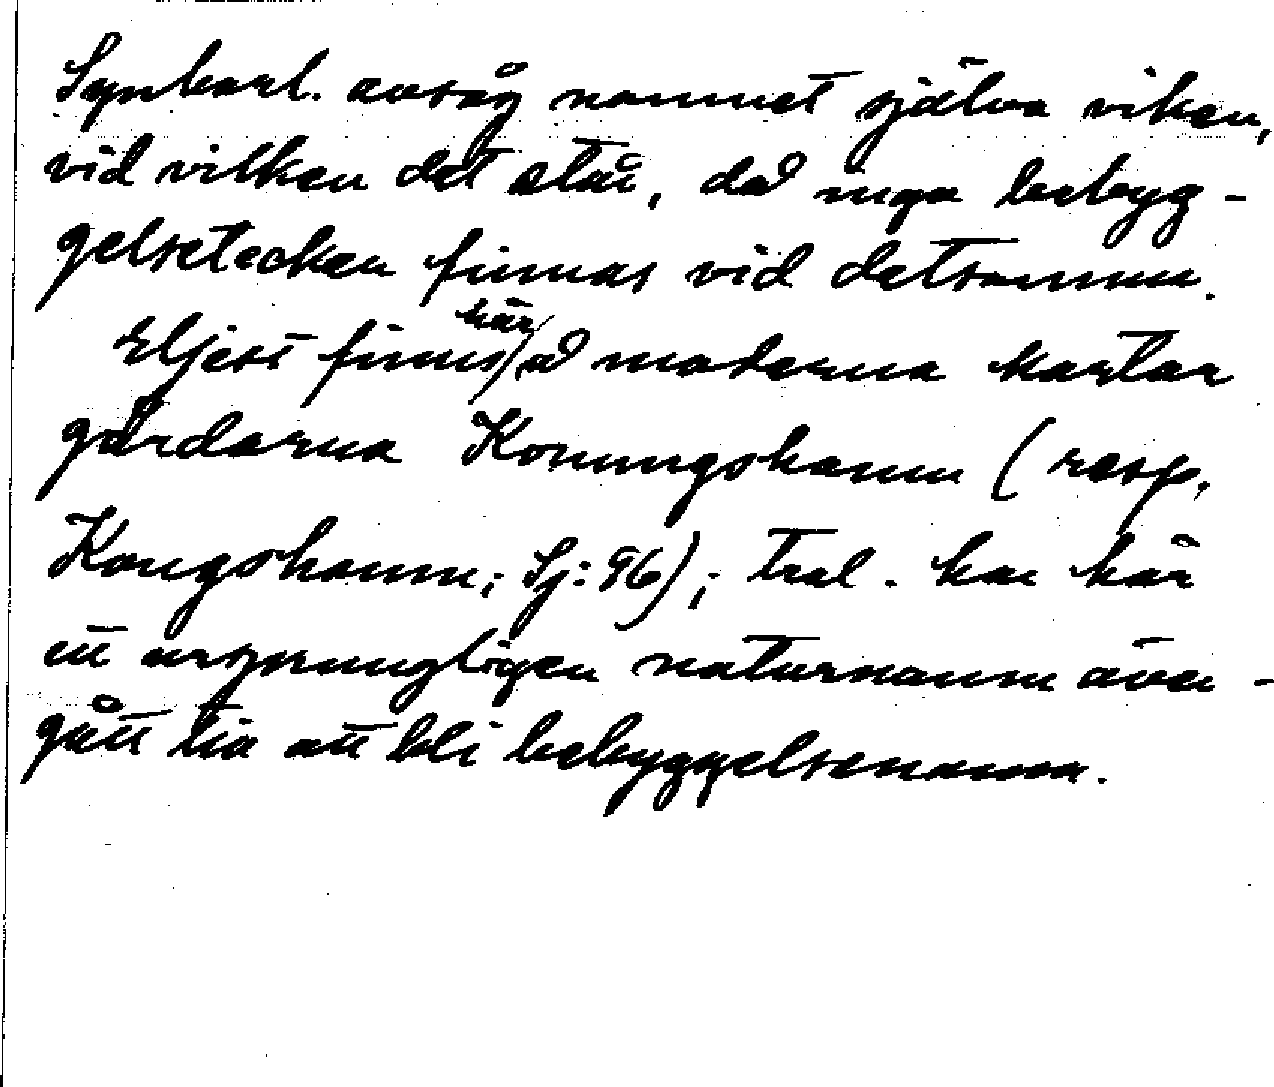 Synbarl. avsåg namnet själva viken,
vid vilken det står, då inga bebyg-
gelsetecken finnas vid detsamma.
Eljest finns här å moderna kartor
gårdarna Konungshamn (resp.
Kongshamn; Sj: 96); trol. har här
ett ursprungligen naturnamn över-
gått till att bli bebyggelsenamn.